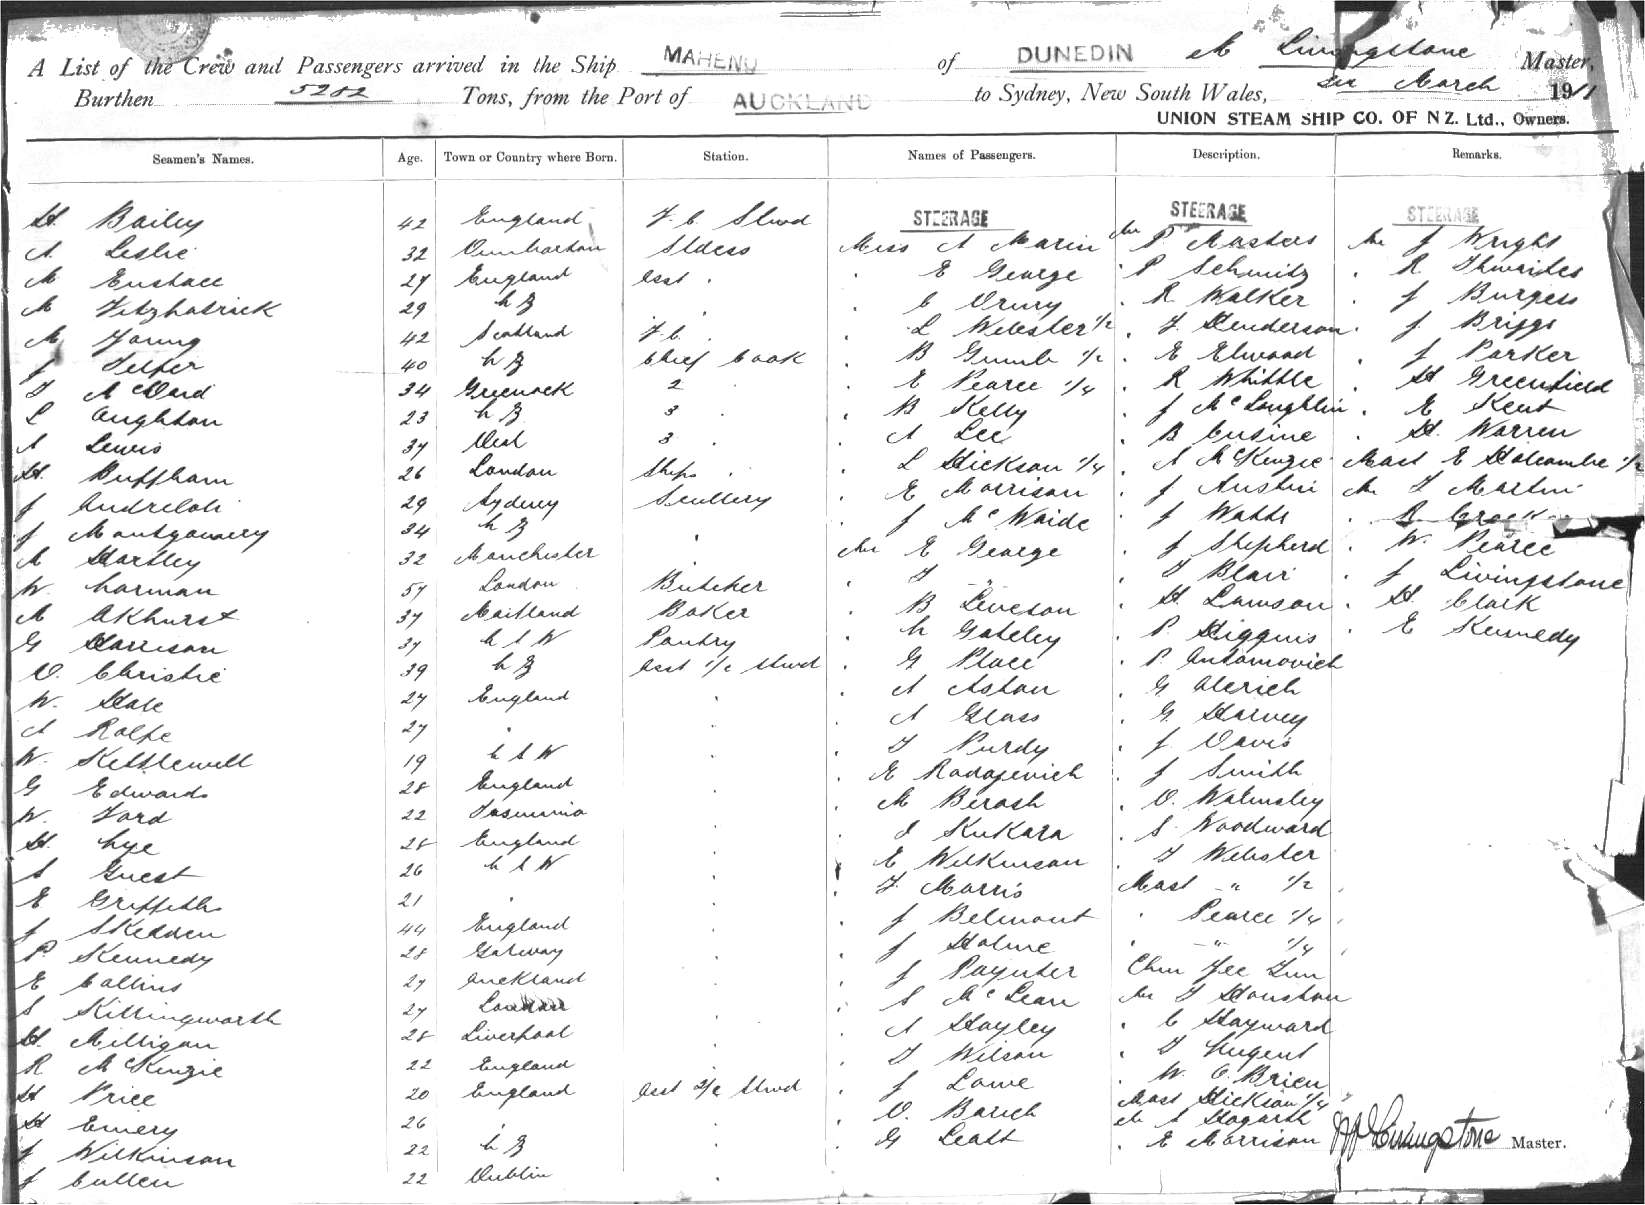 A List of the Crew and Passengers arrived in the Ship MAHENO of DUNEDIN M Livingstone Master,
Burthen 5282 Tons, from the Port of AUCKLAND to Sydney, New South Wales, March 1911
UNION STEAM SHIP CO. OF N Z. Ltd., Owners.
Seamen's Names. Age. Town or Country where Born. Station. Names of Passengers. Description. Remarks.
STEERAGE STEERAGE STEERAGE
H Bailey 42 England F. C. Stwd
A Leslie 32 Dumbarton Stdess Miss A Marin Mr P Masters Mr J Wright
M Eustace 27 England Asst . . E George . P Schmitz . R Thwaites
M Fitzpatrick 29 N Z . . C Drury . R Walker . J Burgess
M Young 42 Scotland F. C. . L Webster 1/2 . J Henderson . J Briggs
J Telfer 40 N Z Chief Cook . B Gumb 1/2 . E Elwood . J Parker
T McDard 34 Greenock 2 . . E Pearce 1/4 . R Whittle . H Greenfield
L Aughton 23 N Z 3 . . B Kelly . J McLoughlin . E Kent
A Lewis 37 Deal 3 . . A Lee . B Cusine . H. Warren
H. Puffham 26 London Ships . . L Dickson 1/4 . A McKenzie Mast E Holcombe 1/2
J 29 Sydney Scullery . E Morrison . J Austin Mr T Martin
J Montgomery 34 N Z . . J McWaide . J Watts . R Crook
A Hartley 32 Manchester Mr E George . J Shepherd . W. Pearce
W Carman 57 London Butcher . T -"- . T Blair . J Livingstone
A Akhurst 37 Maitland Baker . B Leveson . H. Lawson . H. Clark
G Harrison 37 N S W Pantry . N Gateley . P. Higgins . E Kennedy
D. Christie 39 N Z Asst 1/c Stwd . G Place . P Antomovich
W. Hale 27 England . . A Aston . G Alerich
A Rolfe 27 . . . A Glass . G Harvey
W. Kettlewell 19 N S W . . T Purdy . J Davis
G Edwards 28 England . . E Radojevich . J Smith
W. Ford 22 Tasmania . . M Berash . D. Walmsley
H Nye 28 England . . J Kukara . S Woodward
S Guest 26 N S W . . E Wilkinson . T Webster
E Griffiths 21 . . . T. Morris Mast -"- 1/2
J Skedden 44 England . . J Belmont . Pearce 1/4
P. Kennedy 28 Galway . . J Holme . -"- 1/4
E Collins 27 Auckland . . J Paynter Chin Yee Lun
S Killingworth 27 London . . S McLean Mr T Houston
H. Milligan 28 Liverpool . . A Hayley . C Hayward
R McKenzie 22 England . . T Wilson . T Nugent
H Price 20 England Asst 2/c Stwd . J Lowe . W O'Brien
H Emery 26 . . . D. Barich Mast Dickson 1/4
J Wilkinson 22 N Z . . G Leatt Mr A Hogarth
J Cullen 22 Dublin . . E Morrison
M Livingstone Master.